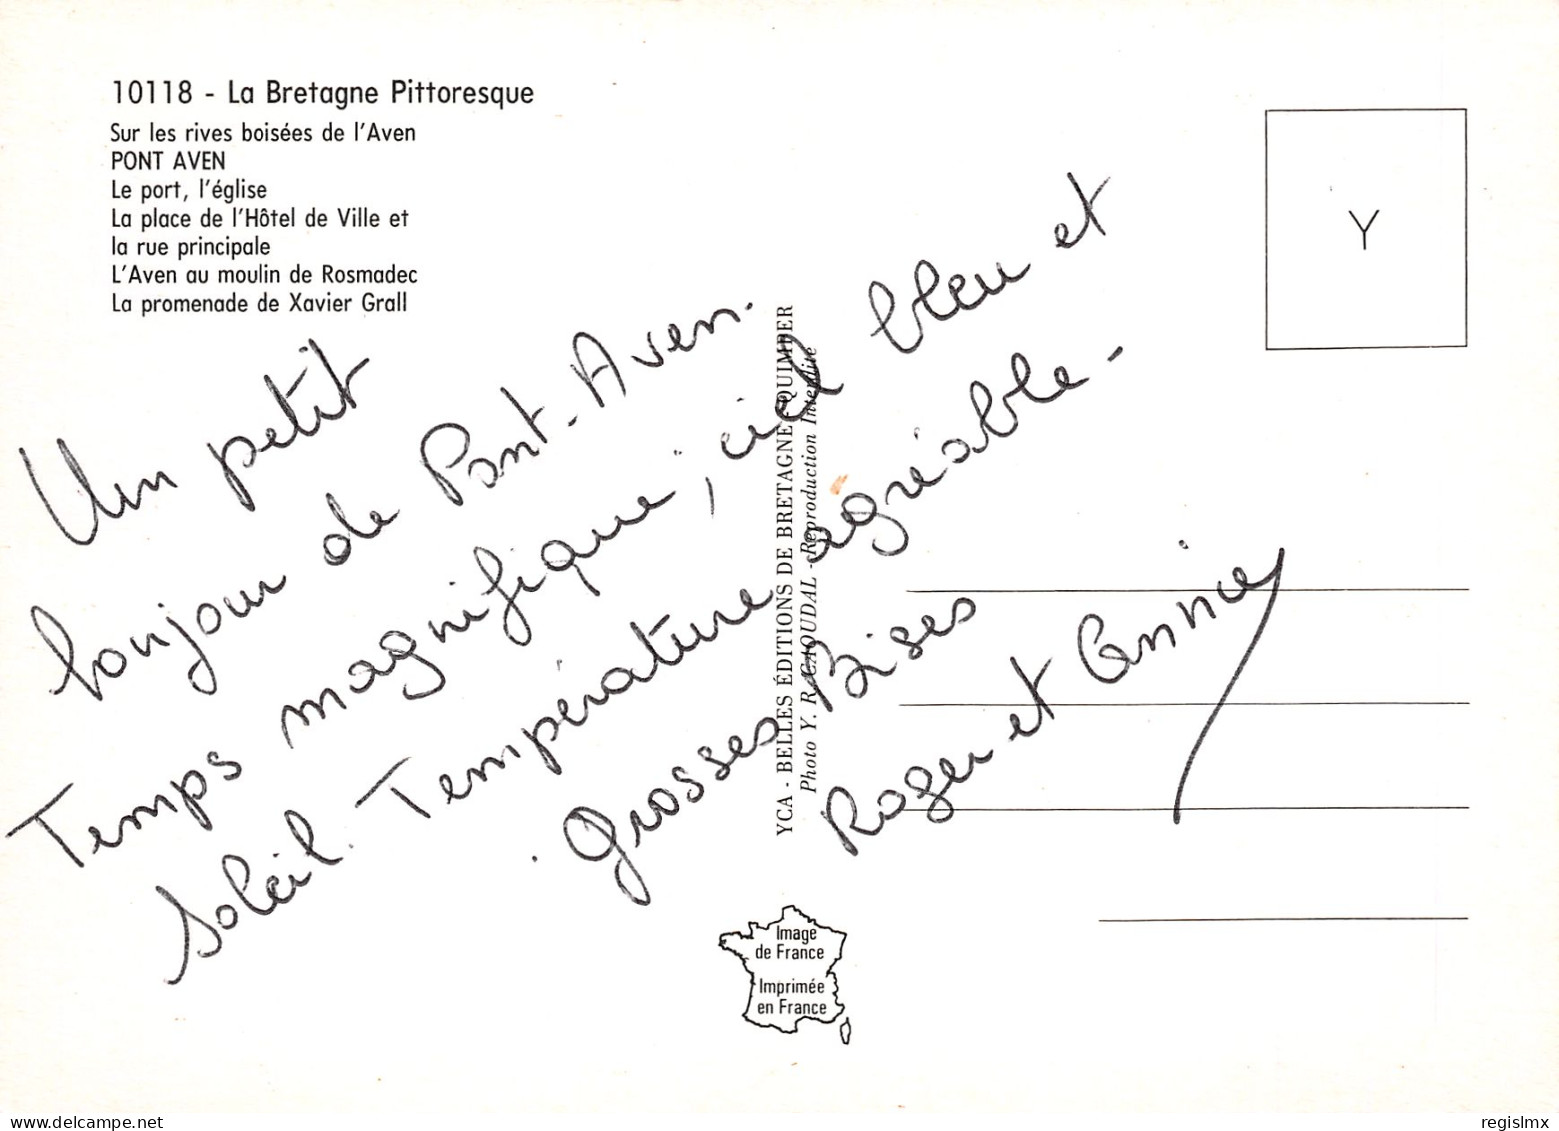 10118 - La Bretagne Pittoresque
Sur les rives boisées de l'Aven
PONT AVEN
Le port, l'église
La place de l'Hôtel de Ville et
la rue principale
L'Aven au moulin de Rosmadec
La promenade de Xavier Grall
Y
Un petit
bonjour de Pont-Aven.
Temps magnifique, ciel bleu et
soleil. Température agréable -
Grosses Bises
Roger et Annie
YCA - BELLES ÉDITIONS DE BRETAGNE - QUIMPER
Photo Y. R. CAOUDAL - Reproduction Interdite
Image
de France
Imprimée
en France
www.delcampe.net
regislmx